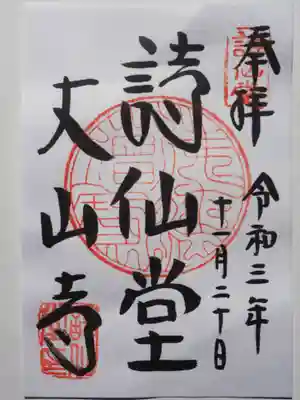 奉拝
令和三年
十一月二十日
詩仙堂
丈山寺